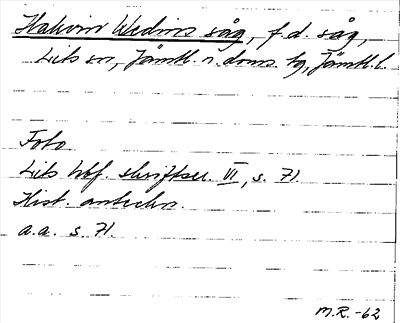 Halvar Wedins såg, f.d. såg,
Lits sn, Jämtl. n. doms. tg, Jämtl. l.
Foto
Lits hbf. skriftser. VI, s. 71.
Hist. anteckn.
a.a. s 71.
M.R.-62